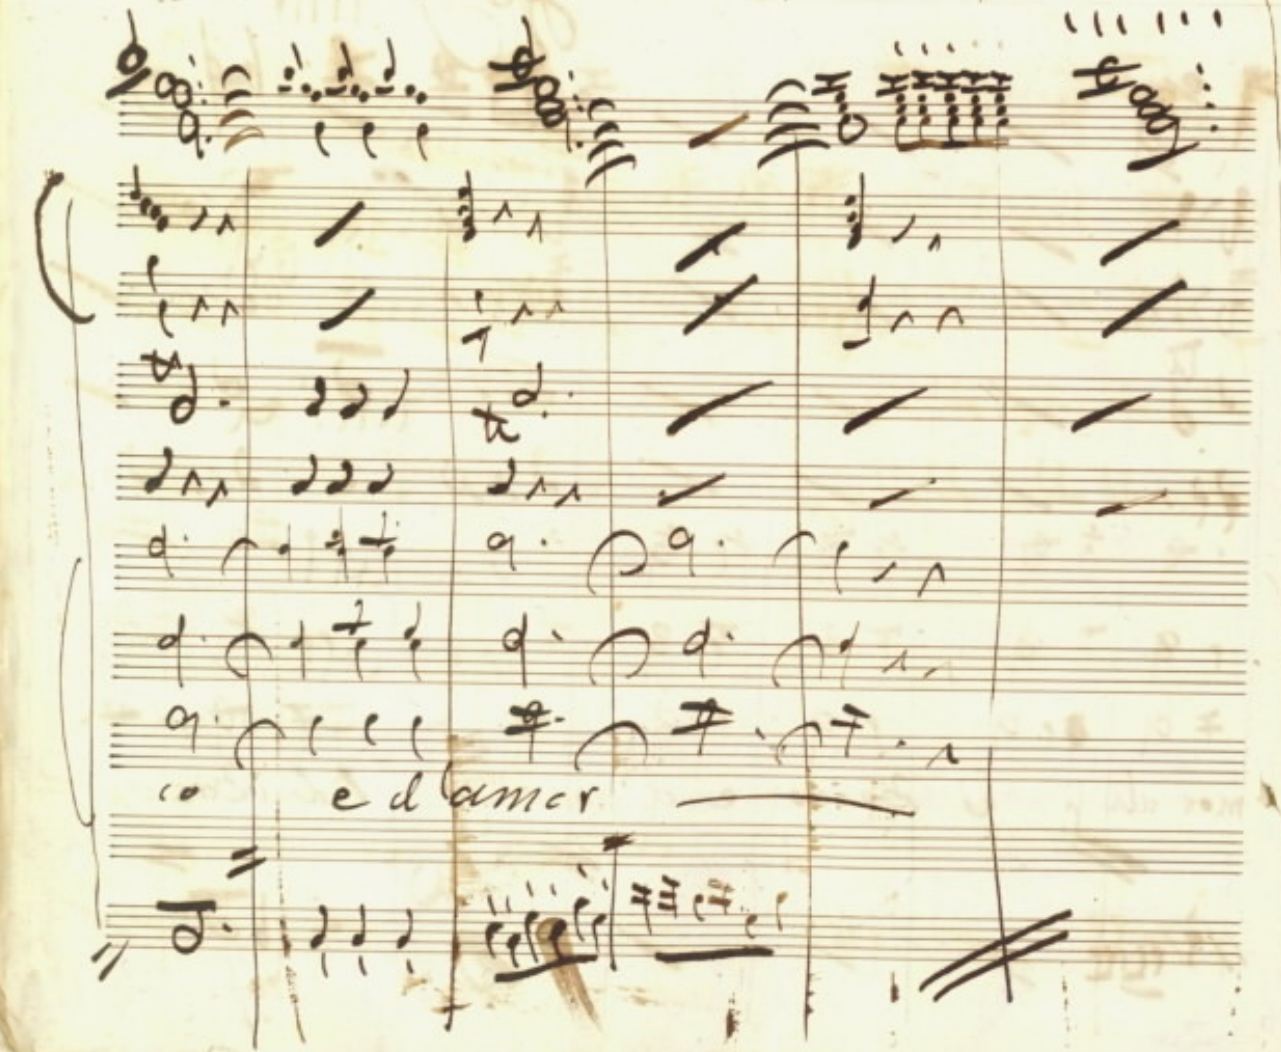 co e d'amor